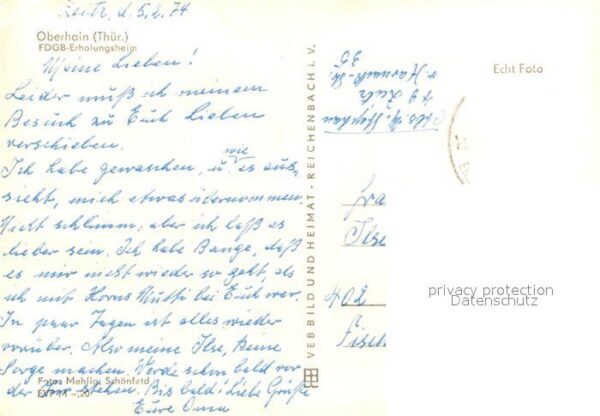 Zeitz, d. 5.2.74
Oberhain (Thür.)
FDGB-Erholungsheim
Meine Lieben!
Leider muß ich meinem
Besuch zu Euch Lieben
verschieben.
Ich habe gewaschen, u. wie es aus-
sieht, mich etwas übernommen.
Nicht schlimm, aber ich laß es
lieber sein. Ich habe Bange, daß
es mir nicht wieder so geht, als
ich mit Horns Mutti bei Euch war.
In paar Tagen ist alles wieder
vorüber. Also meine Ilse, keine
Sorge machen. Werde schon bald vor
der Türe stehen. Bis bald! Liebe Grüße
Eure Oma
Foto: Mahlig, Schönfeld
EVP M -,20
VEB BILD UND HEIMAT · REICHENBACH i. V.
Echt Foto
49 Zeitz
35
Fra
Ilse
402
privacy protection
Datenschutz